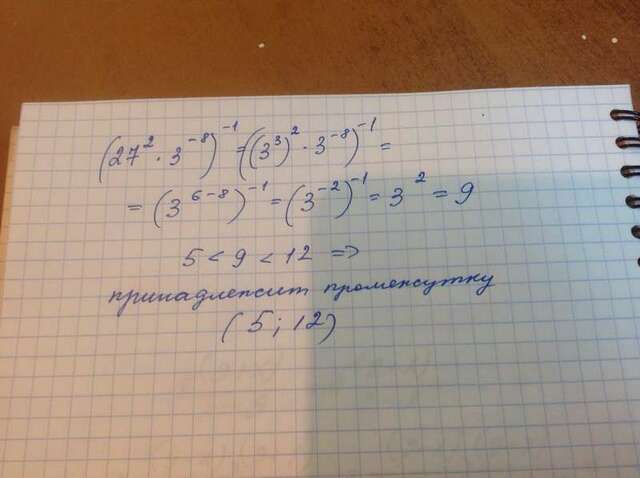 (27² · 3⁻⁸)⁻¹ = ((3³)² · 3⁻⁸)⁻¹ =
= (3⁶⁻⁸)⁻¹ = (3⁻²)⁻¹ = 3² = 9
5 < 9 < 12 ⇒
принадлежит промежутку
(5; 12)